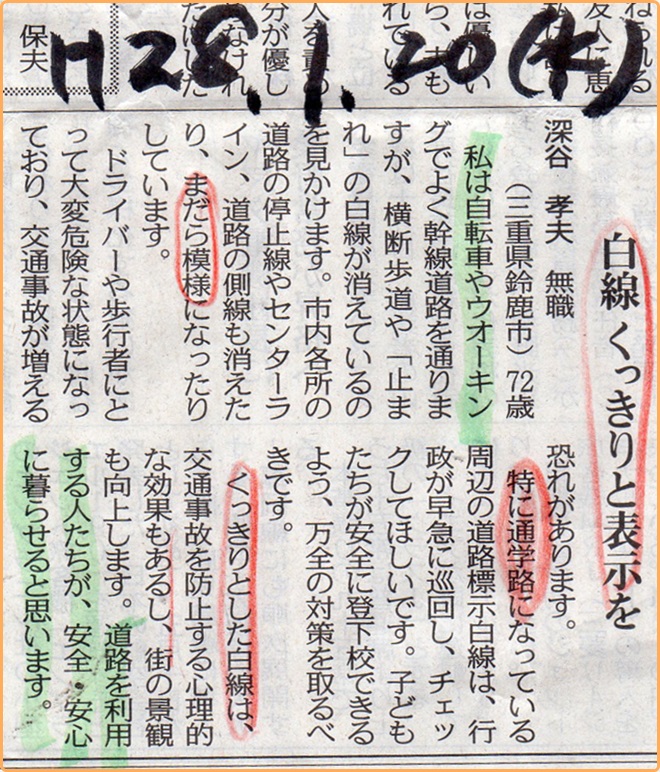 H28.1.20(水)
保夫
白線 くっきりと表示を
深谷 孝夫 無職
(三重県鈴鹿市) 72歳
私は自転車やウオーキン
グでよく幹線道路を通りま
すが、横断歩道や「止ま
れ」の白線が消えているの
を見かけます。市内各所の
道路の停止線やセンターラ
イン、道路の側線も消えた
り、まだら模様になったり
しています。
ドライバーや歩行者にと
って大変危険な状態になっ
ており、交通事故が増える
恐れがあります。
特に通学路になっている
周辺の道路標示白線は、行
政が早急に巡回し、チェッ
クしてほしいです。子ども
たちが安全に登下校できる
よう、万全の対策を取るべ
きです。
くっきりとした白線は、
交通事故を防止する心理的
な効果もあるし、街の景観
も向上します。道路を利用
する人たちが、安全・安心
に暮らせると思います。